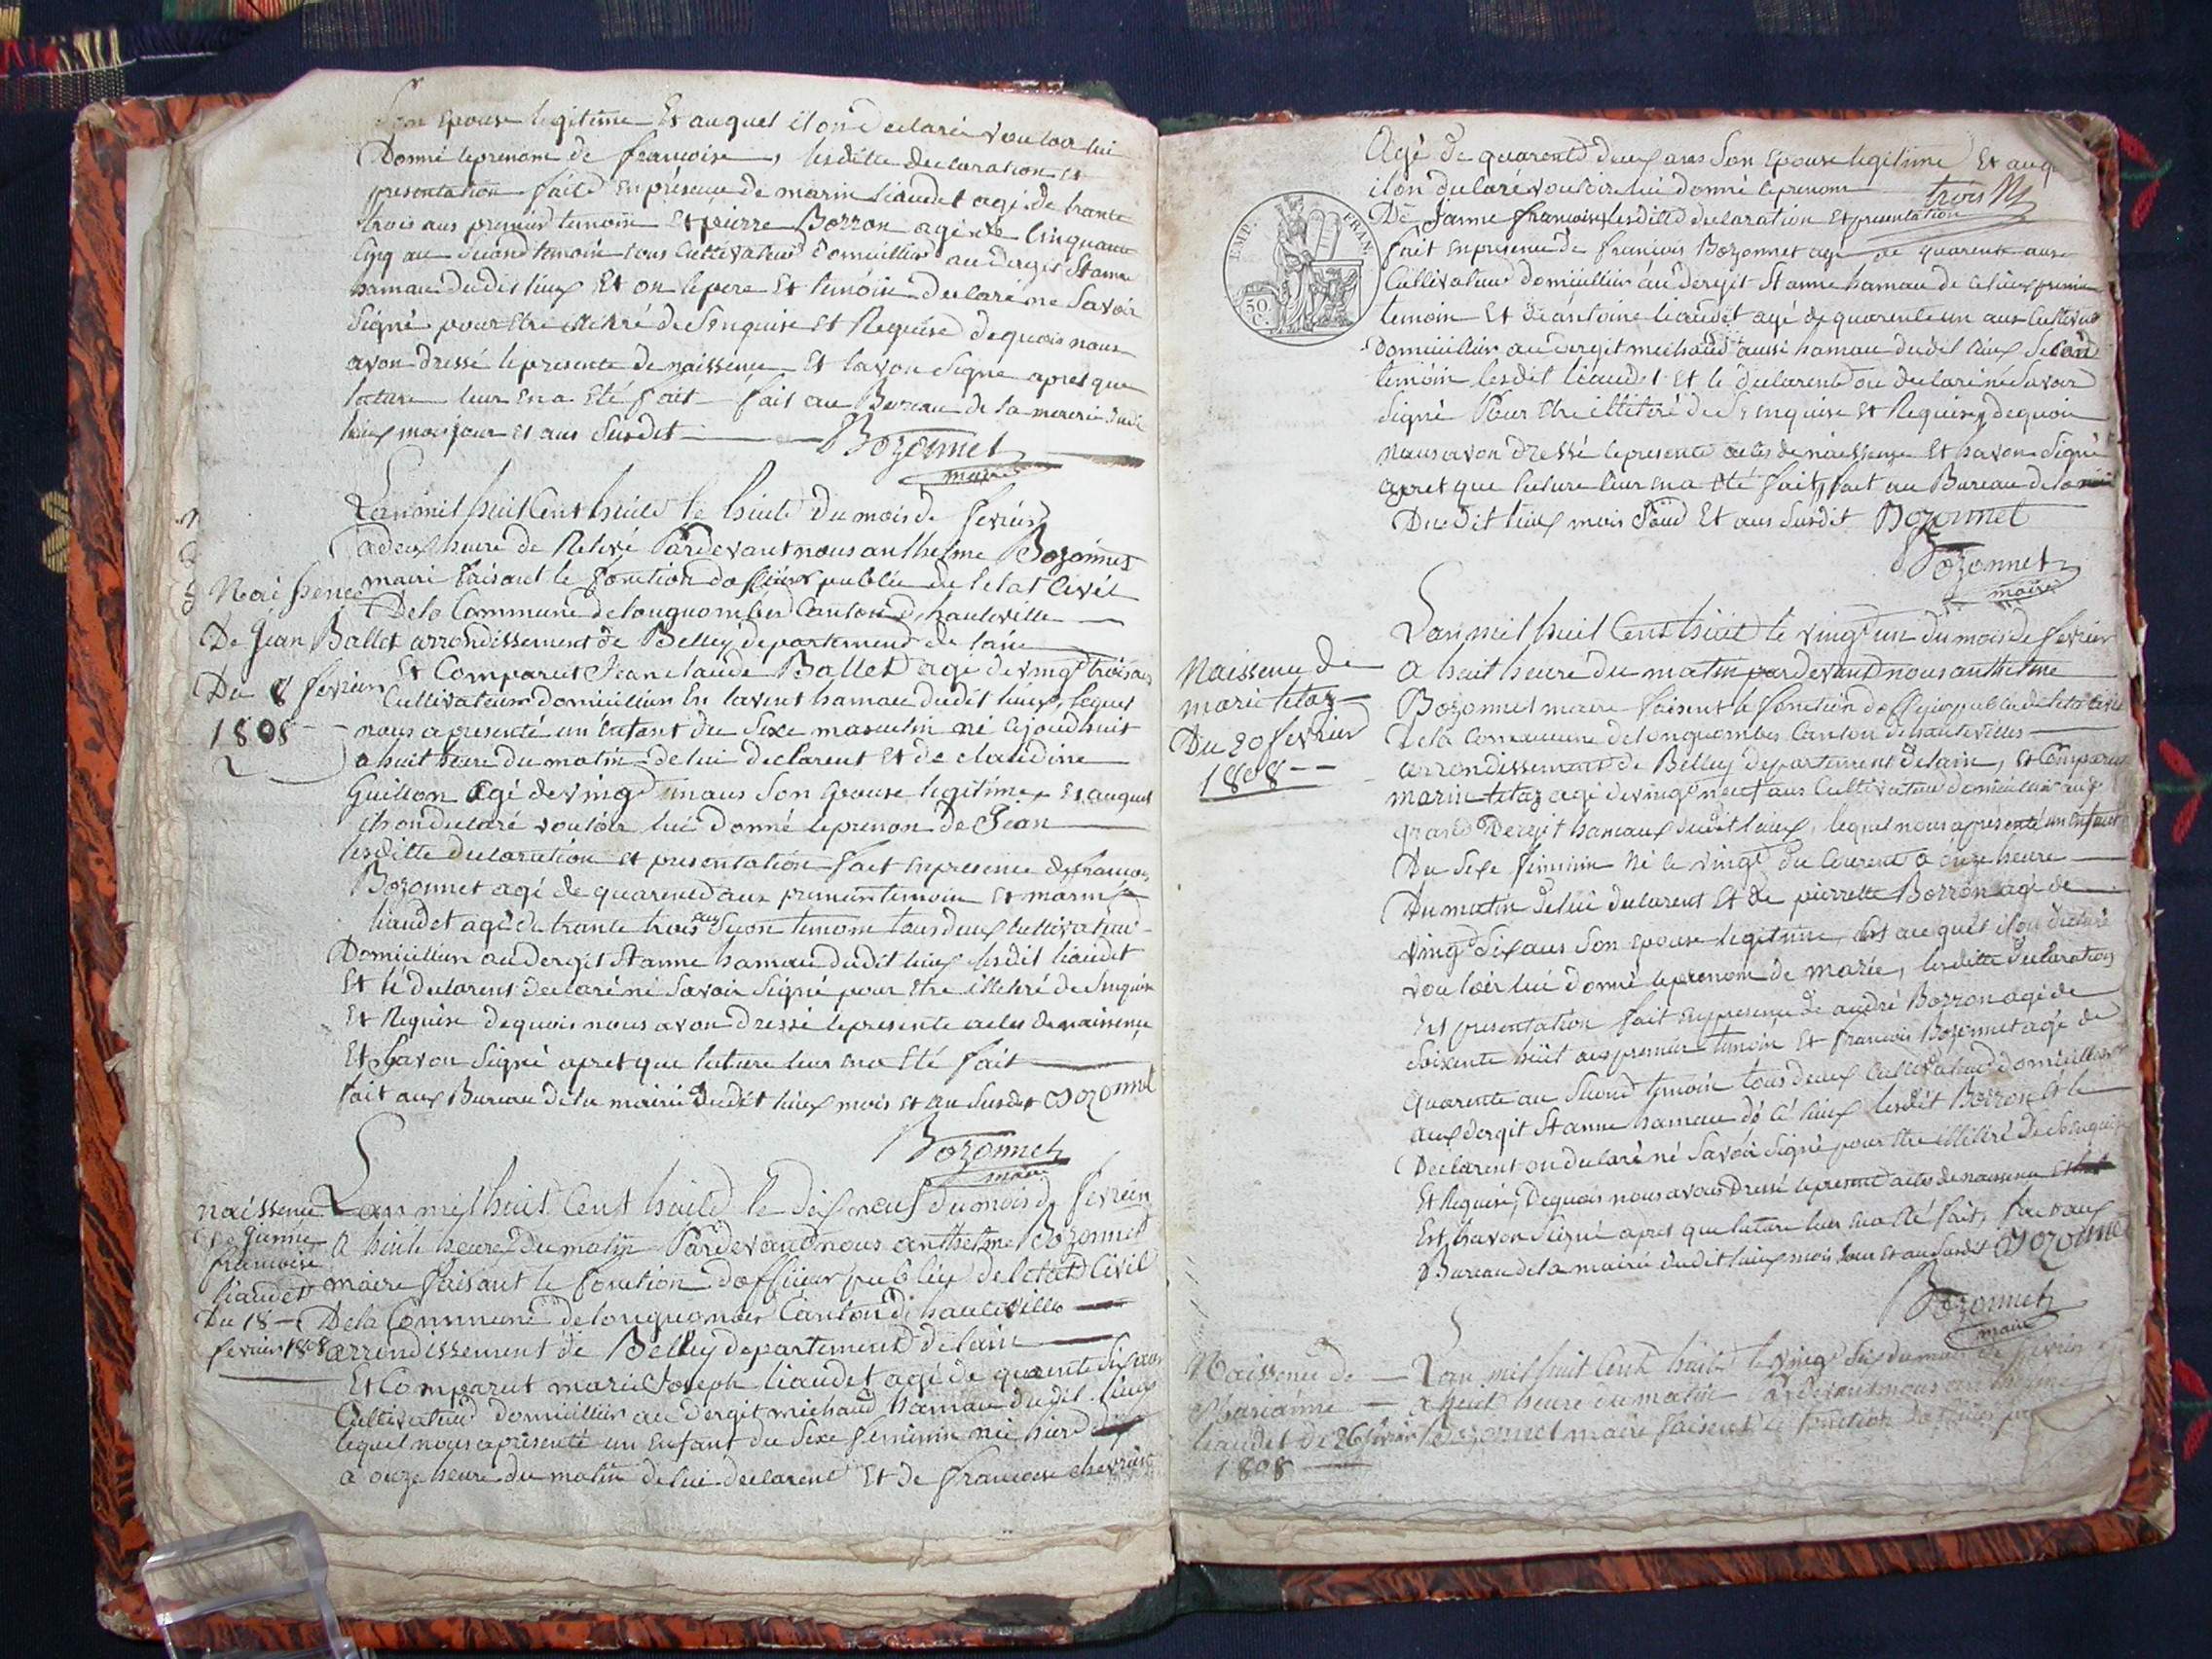 Son epouse legitime Et auquel il on declaré vouloir lui
Donné leprenom de francoise, lesditte declaration et
presentation faite en présence de marin liaudet agé de trante
trois ans premier temoin Et pierre Borron agé de Cinquante
Cinq an second temoin tous Cultivateur domicillier au dergit St anne
hamau dudit lieux Et on le pere Et temoin declaré ne Savoir
Signé pour Etre illetré de Senquise Et Requise de quois nous
avon dressé lepresente de naissence Et lavon Signe apret que
lature leur En a Eté fait fait au Bureau de la mererie dudi
lieux mois jour Et ans Susdit Bozonnet
maire
Naissence
De Jéan Ballet
Du 8 fevrier
1808
Lan mil huit Cent huite le huite Du mois de fevrier
a deux heure de Relevé Pardevant nous anthelme Bozonnet
maire faisant le fonction dofficier publie de letat Civil
De la Commune de longuombes Canton d'hauteville
arrondissement de Belley departement de lain
Et Comparut Jean claude Ballet agé de vingt trois ans
Cultivateur domicillier En lavent hamau dudit lieux, lequel
nous a presenté un Enfant du Sexe masculin né cejoudhuit
a huit heure du matin de lui declarent Et de claudine
Guillon agé de vingt un ans Son Epouse legitime Et auquel
ils on declaré vouloir lui donné leprenon de Jéan
lesditte declaration et presentation fait en presence de francois
Bozonnet agé de quarente ans premier temoin Et marin
liaudet agé de trante trois ans Secon temoin tous deux Cultivateur
Domicillier au dergit St anne hamau dudit lieux lesdit liaudet
Et lé declarent declaré né Savoir Signé pour Etre illetré de Senquise
Et Requise dequois nous avon dressé lepresente actes de naissence
Et Lavon Signé apret que lature leur en a Eté fait
fait aux Bureau de la mairie dudit lieux mois et an Susdit Bozonnet
Bozonnet
maire
naissence
De jeanne
francoise
liaudet
Du 18
fevrier 1808
Lan mil huit Cent huite le dix neuf du mois de fevrier
A huite heure du matin Pardevand nous anthelme Bozonnet
maire faisant le fonction dofficier publie de letat Civil
De la Commune de longuombes Canton d'hauteville
arrondissement de Belley departement de lain
Et Comparut marie Joseph liaudet agé de quarente Six ans
Cultivateur domicillier au dergit michaud hamau dudit lieux
lequel nous a présenté un Enfant du Sexe feminin né hierd
a onze heure du matin de lui declarent Et de francoise chevrier
Agé de quarente deux ans Son Epouse legitime Et auq
il on declaré vouloir lui donné leprenom
trois
De Janne francoise lesditte declaration Et presentation
EMP. FRAN.
50 C.
fait en presence de francois Bozonnet agé de quarente ans
Cultivateur domicillier au dergit St anne hamau de ce lieux premier
temoin Et de antoine liaudet agé de quarente un ans Cultivat
Domicillier au dergit michaud aussi hamau dudit lieux Secon
temoin lesdit liaudet Et le declarent on declaré né Savoir
Signé Pour Etre illitré de Senquise Et Requise, dequoi
nous avon dressé lepresente actes de naissence Et havon Signé
apret que lature leur en a Eté fait, fait au Bureau de la
Dudit lieux mois Et ans Susdit Bozonnet
Bozonnet
maire
Naissence de
marie tetaz
Du 20 fevrier
1808
Lan mil huit Cent huit le vingt un du mois de fevrier
a huit heure du matin pardevand nous anthelme
Bozonnet maire faisent le fonction dofficier publie de letat Civil
De la Commune de longuombes Canton de hauteville
arrondissement de Belley departement de lain, Et Comparut
marin tetaz agé de vingt neuf ans Cultivateur domicillier aux
grand Dergit hamaux dudit lieux, lequel nous a presenté un enfant
Du Sexe feminin Né le vingt du Courent a onze heure
Du matin de lui declarent Et de pierrette Borron agé de
vingt Six ans Son epouse legitime, Et auquel il on declaré
vouloir lui donné leprenom de marie, lesditte declaration
Et presentation fait en presence de andré Borron agé de
Soixente huit ans premier temoin Et francois Bozonnet agé de
quarente an Second temoin tous deux Cultivateur domicillier
aux dergit St anne hamau de ce lieux lesdit Borron Et le
Declarent on declaré né Savoir Signé pour Etre illitéré de Senquise
Et Requise, Dequois nous avons Dressé lepresente actes de naissence
Et, havon Signé apres que lature leur en a Eté fait, fait aux
Bureau de la mairie dudit lieux mois Jour Et an Susdit Bozonnet
Bozonnet
maire
Naissence de
Marianne
liaudet de 26 fevrier
1808
Lan mil huit Cent huite le vingt Six du mois de fevrier
a huit heure du matin Pardevant nous anthelme
Bozonnet maire faisent le fonction dofficier